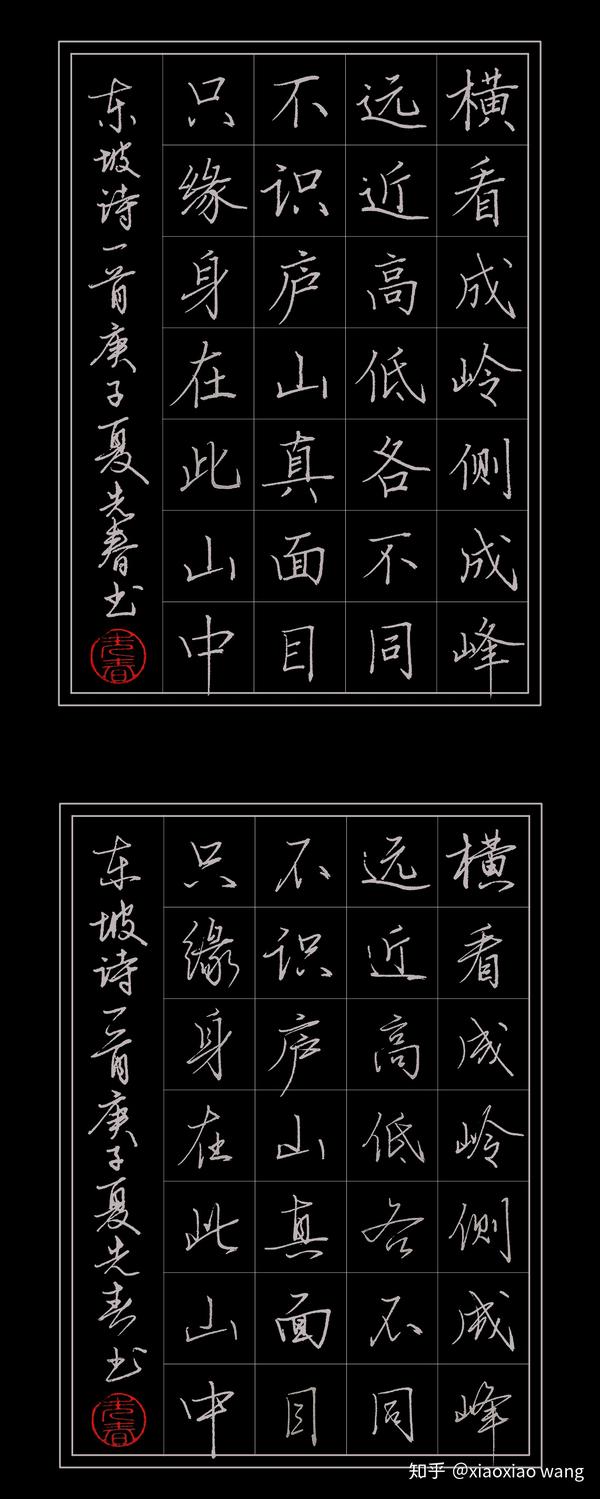 横看成岭侧成峰
远近高低各不同
不识庐山真面目
只缘身在此山中
东坡诗一首庚子夏先春书
先春
横看成岭侧成峰
远近高低各不同
不识庐山真面目
只缘身在此山中
东坡诗一首庚子夏先春书
先春
知乎 @xiaoxiao wang